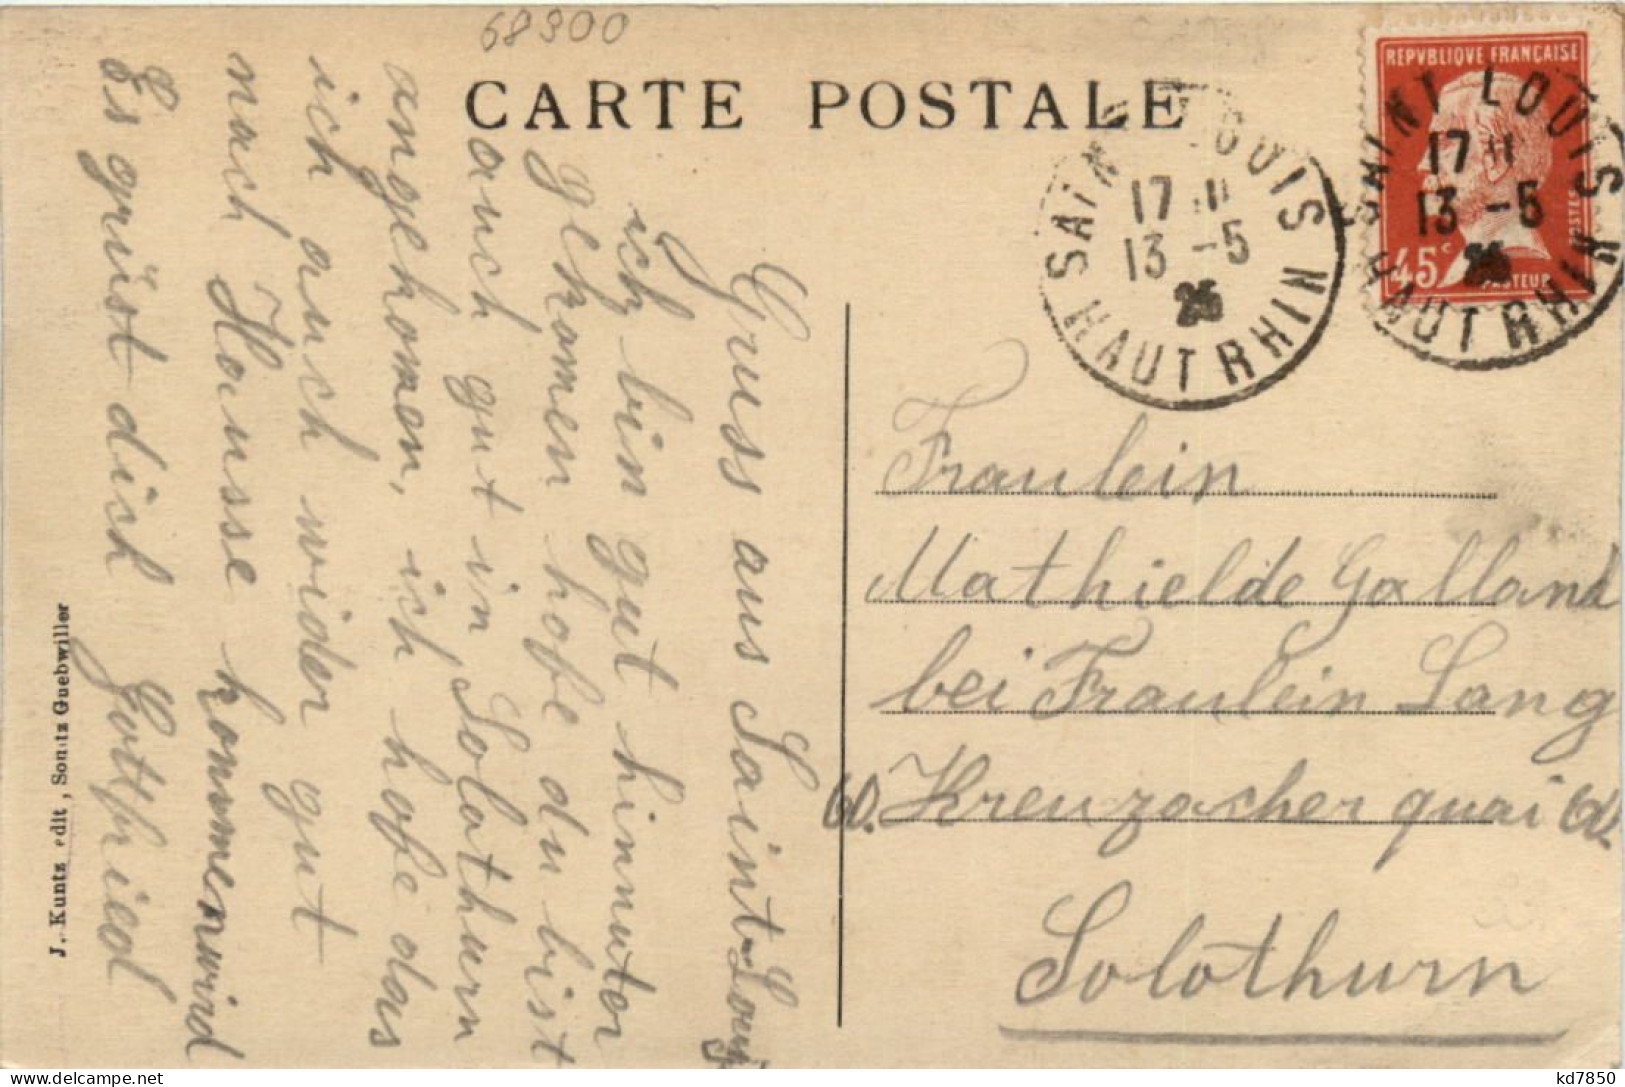 68300
CARTE POSTALE
REPVBLIQVE FRANÇAISE
45c
POSTES
PASTEUR
SAINT LOUIS
17 11
13 -5
HAUT RHIN
SAINT LOUIS
17 11
13 -5
HAUT RHIN
Gruss aus Saint-Louis
ich bin gut hinunter
gekomen hofe du bist
auch gut in Solothurn
angekomen, ich hofe das
ich auch wider gut
nach Hausse kommen wird
Es grüst dich Gottfried
Fraulein
Mathielde Galland
bei Fraulein Lang
60. Kreuzacher quai 60.
Solothurn
J. Kuntz edit, Soultz Guebwiller
kd7850